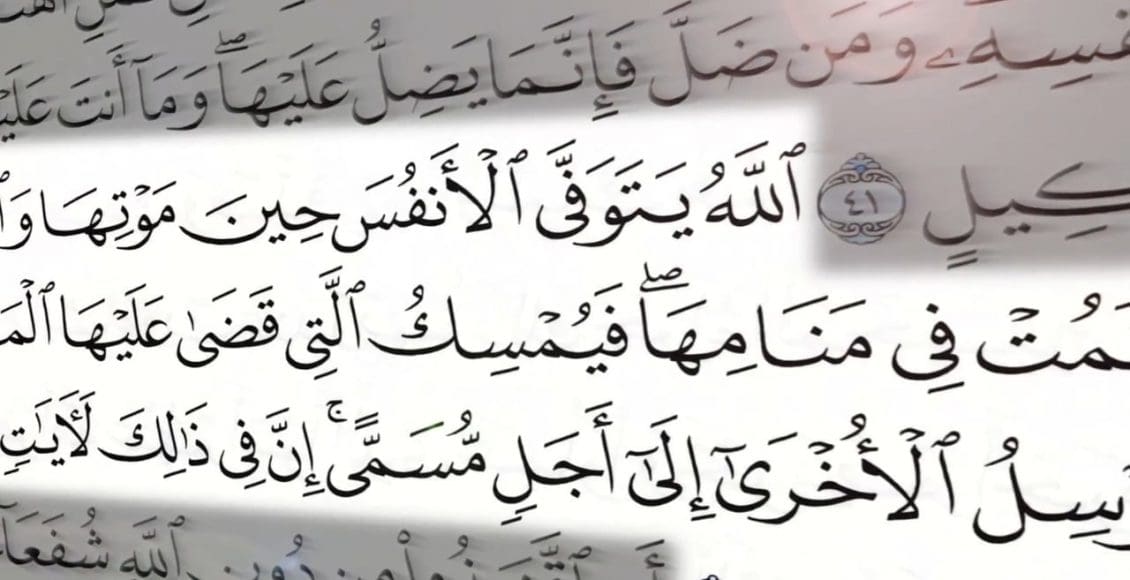 فسِهِۦ وَمَن ضَلَّ فَإِنَّمَا يَضِلُّ عَلَيۡهَاۖ وَمَآ أَنتَ عَلَيۡ
كِيلٍ ٤١ ٱللَّهُ يَتَوَفَّى ٱلۡأَنفُسَ حِينَ مَوۡتِهَا وَٱ
تَمُتۡ فِي مَنَامِهَاۖ فَيُمۡسِكُ ٱلَّتِي قَضَىٰ عَلَيۡهَا ٱلۡمَ
رۡسِلُ ٱلۡأُخۡرَىٰٓ إِلَىٰٓ أَجَلٖ مُّسَمًّىۚ إِنَّ فِي ذَٰلِكَ لَأٓيَٰتٖ
دُونِ ٱللَّهِ شُفَعَآ